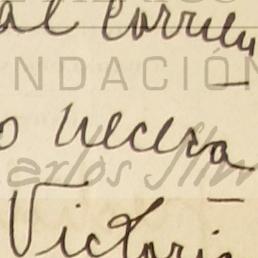 al corrien
NDACIÓN
o necesa
arlos Slim
Victoria